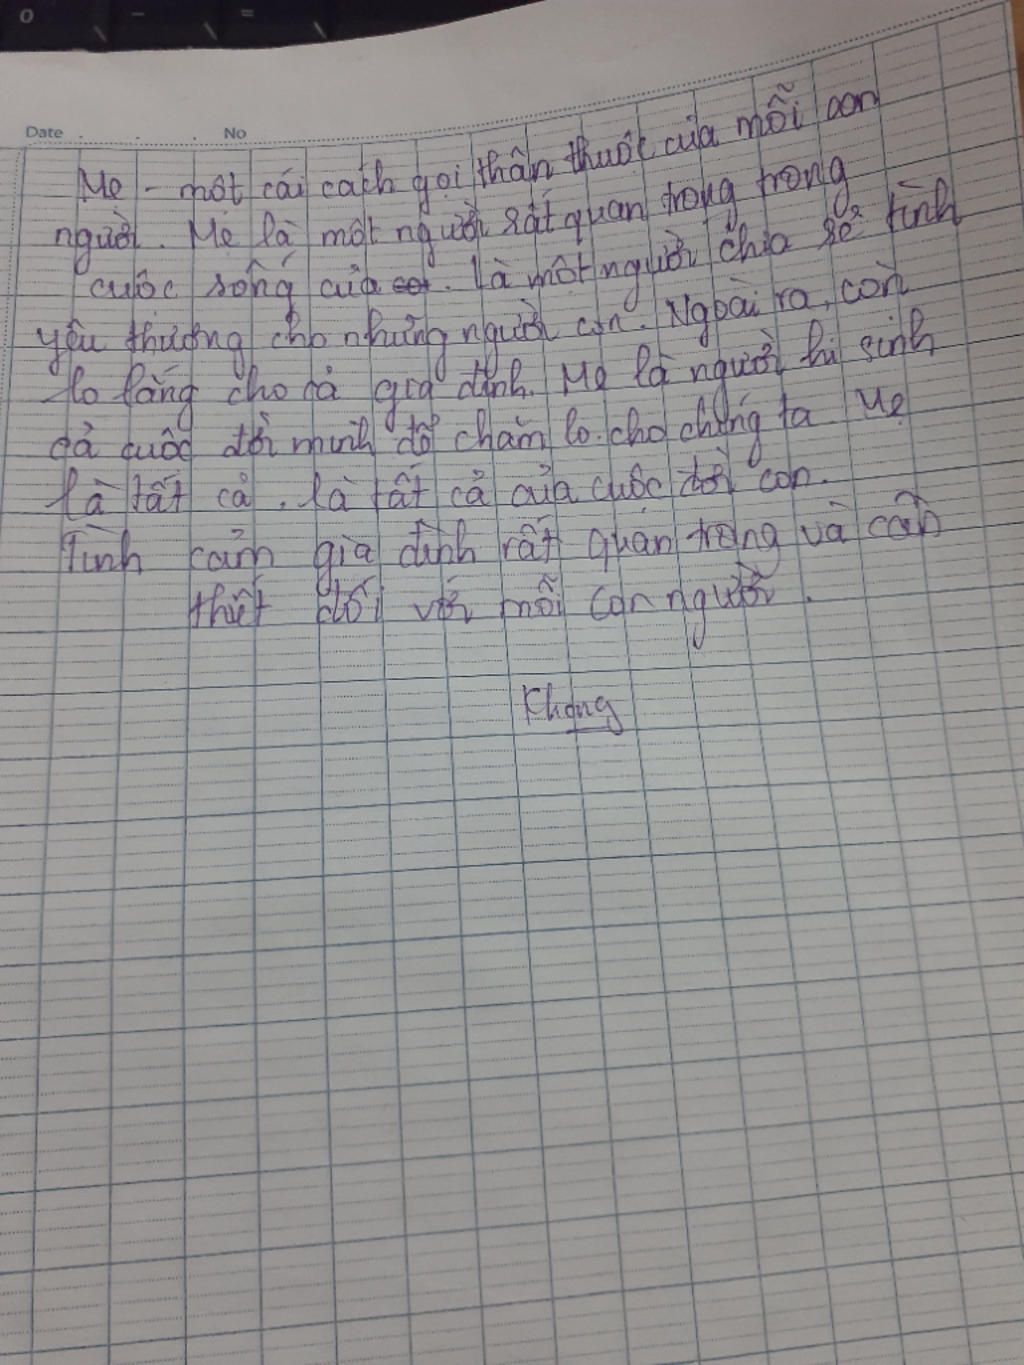 o - =
Date . . . No
Mẹ - một cái cách gọi thân thuộc của mỗi con
người. Mẹ là một người rất quan trọng trong
cuộc sống của con. Là một người chia sẻ tình
yêu thương cho những người con. Ngoài ra, còn
lo lắng cho cả gia đình. Mẹ là người hi sinh
cả cuộc đời mình để chăm lo cho chúng ta Mẹ
là tất cả, là tất cả của cuộc đời con.
Tình cảm gia đình rất quan trọng và cần
thiết đối với mỗi con người.